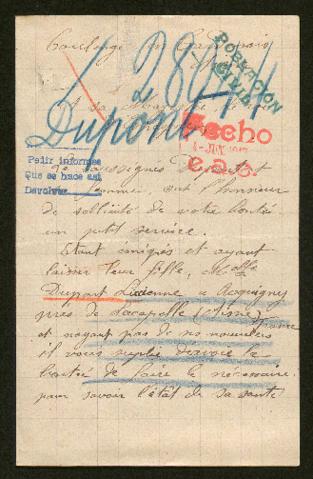 28044
Dupont
POBLACION
CIVIL
Hecho
4-JUN. 1917
e.a.s.
Pedir informes
Que se hace asi
Devolver
soussignés Dupont et
femme ont l'honneur
de sollicité de votre bontée
un petit service.
Etant émigrés et ayant
laisser leur fille, Melle
Dupont Lucienne a Rocquigny
près de Lacapelle (Aisne)
France
et nayant pas de ses nouvelles
il vous supplie d'avoir la
bontée de faire le nécessaire
pour savoir l'état de sa santé